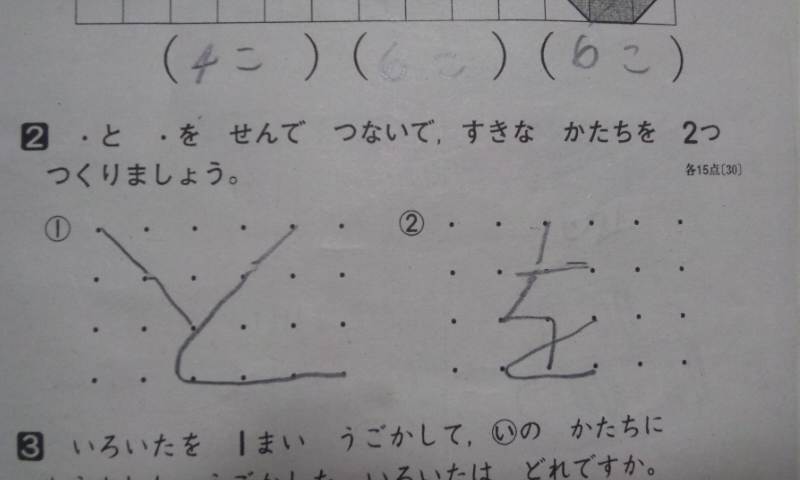 (4こ) (6こ) (6こ)
2 ・と ・を せんで つないで, すきな かたちを 2つ
つくりましょう。
各15点〔30〕
① と ② を
3 いろいたを 1まい うごかして, ㋑の かたちに
いろいたは どれですか。